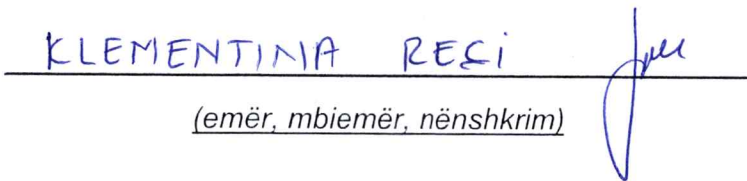 KLEMENTINA REÇI
(emër, mbiemër, nënshkrim)